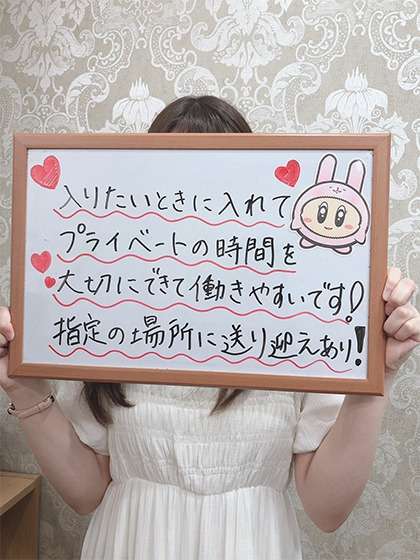 入りたいときに入れて
プライベートの時間を
大切にできて働きやすいです!
指定の場所に送り迎えあり!